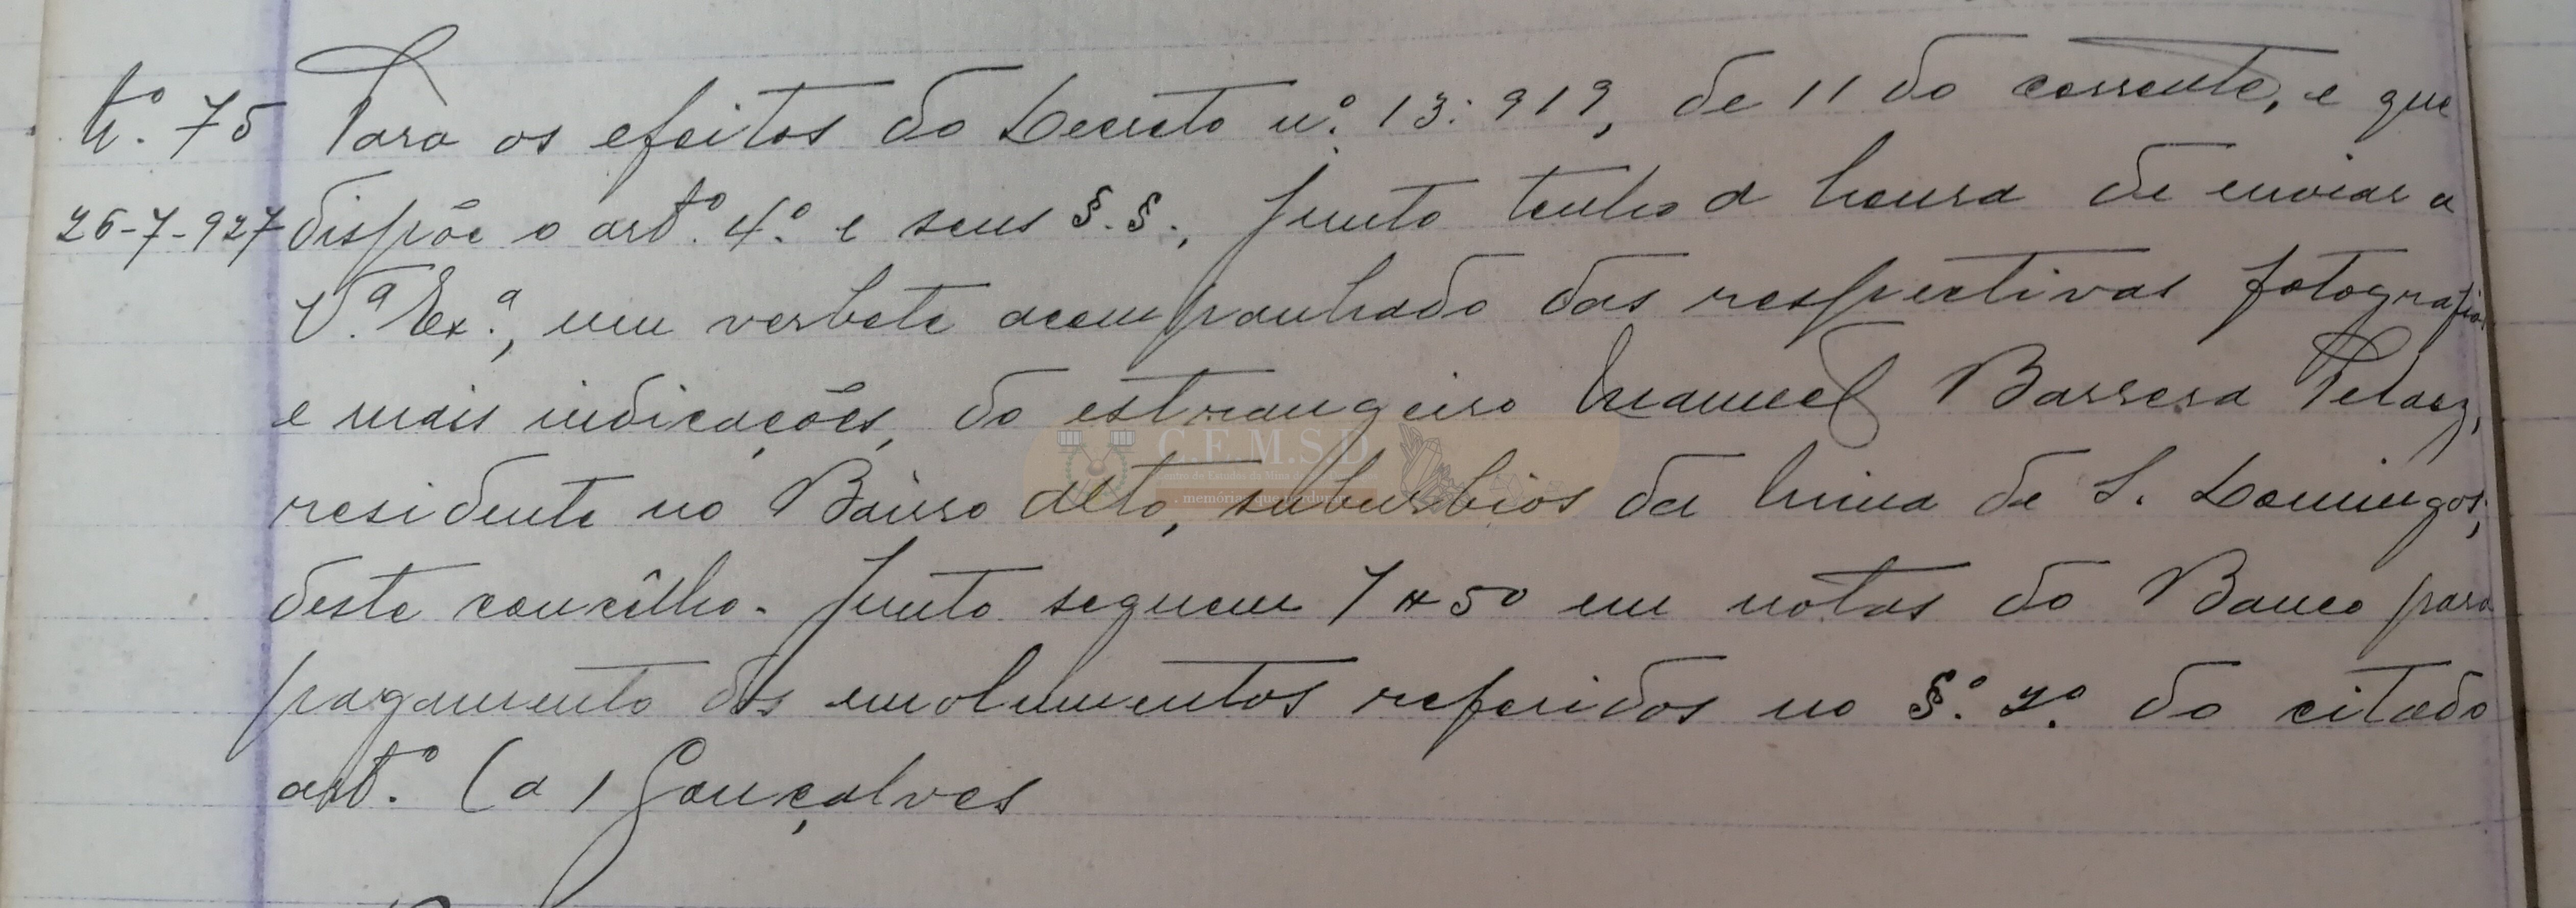 N.º 75 Para os efeitos do Decreto n.º 13:919, de 11 do corrente, e que
26-7-927 dispõe o artº. 4.º e seus §.§., junto tenho a honra de enviar a
V.ª Ex.ª, um verbete acompanhado das respectivas fotografias
e mais indicações, do estrangeiro Manuel Barrera Pelaez,
C.E.M.S.D.
Centro de Estudos da Mina de S. Domingos
. memórias que perduram .
residente no Bairro alto, suburbios da Mina de S. Domingos,
deste concêlho. Junto seguem 7$50 em notas do Banco para
pagamento dos emolumentos referidos no §.º 2.º do citado
artº. (a) Gonçalves